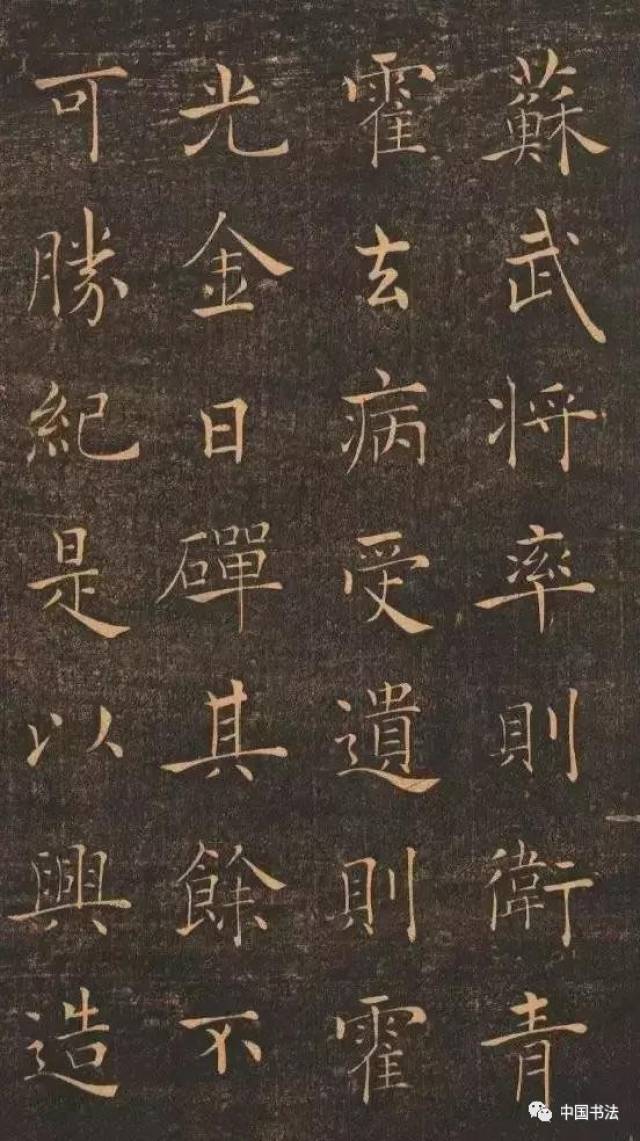 蘇武將率則衛青
霍去病受遺則霍
光金日磾其餘不
可勝紀是以興造
中国书法